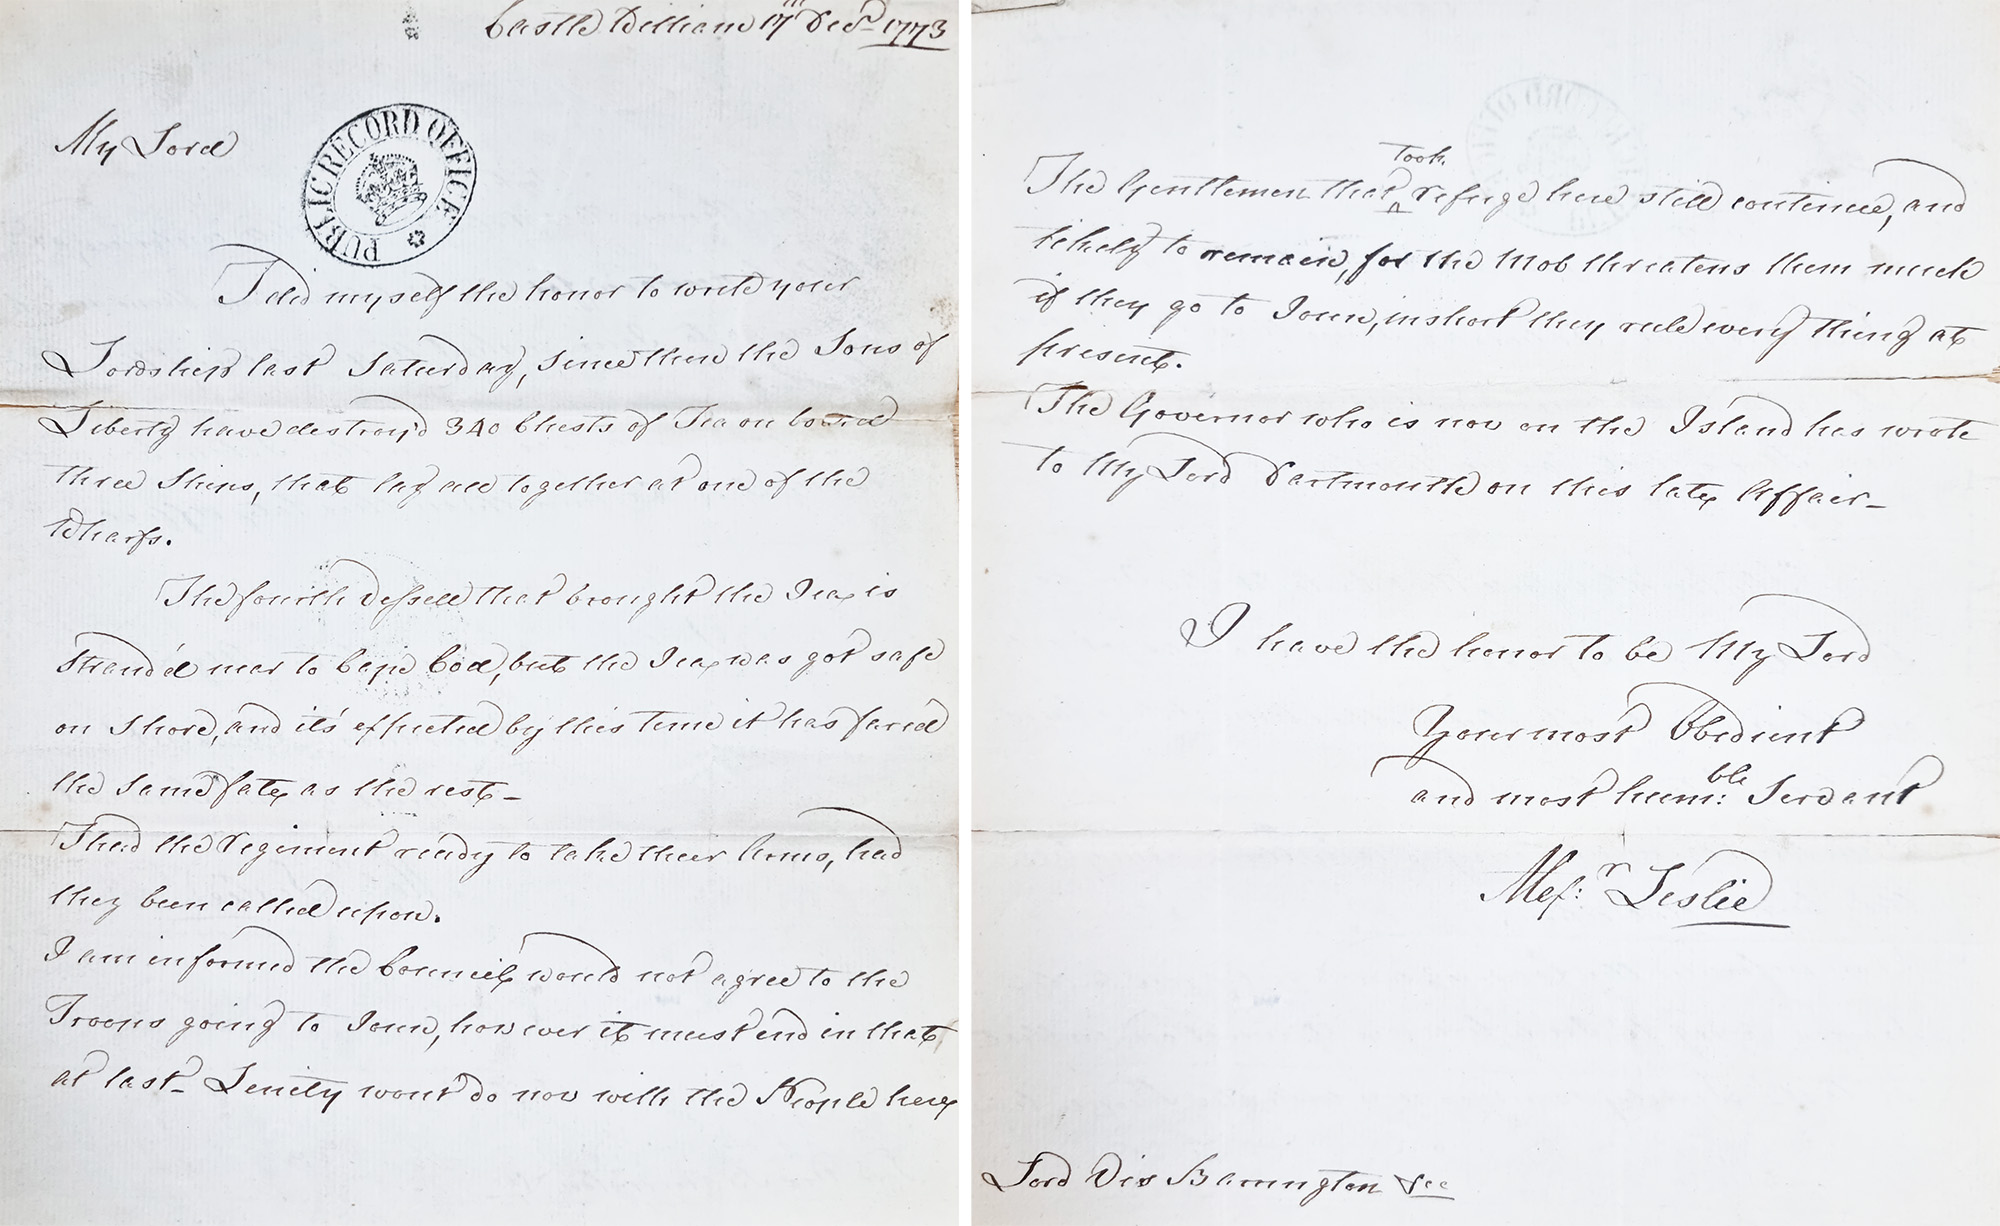 Castle William 17th Decr 1773
My Lord
PUBLIC RECORD OFFICE
I did myself the honor to write your
Lordship last Saturday, since then the Sons of
Liberty have destroy'd 340 Chests of Tea on board
three Ships, that lay all together at one of the
Wharfs.
The fourth Vessell that brought the Tea is
strand'd near to Cape Cod, but the Tea was got safe
on Shore, and it's expected by this time it has fared
the same fate as the rest_
I had the Regiment ready to take their Arms, had
they been called upon.
I am informed the Council would not agree to the
Troops going to Town, however it must end in that
at last_ Lenity wont do now with the People here
The Gentlemen that took refuge here still continue, and
likely to remain, for the Mob threatens them much
if they go to Town, in short they rule every thing at
present.
The Governor who is now on the Island has wrote
to My Lord Dartmouth on this late Affair_
I have the honor to be My Lord
Your most Obedient
and most humble: Servant
Alexr: Leslie
Lord Vis Barrington &ca